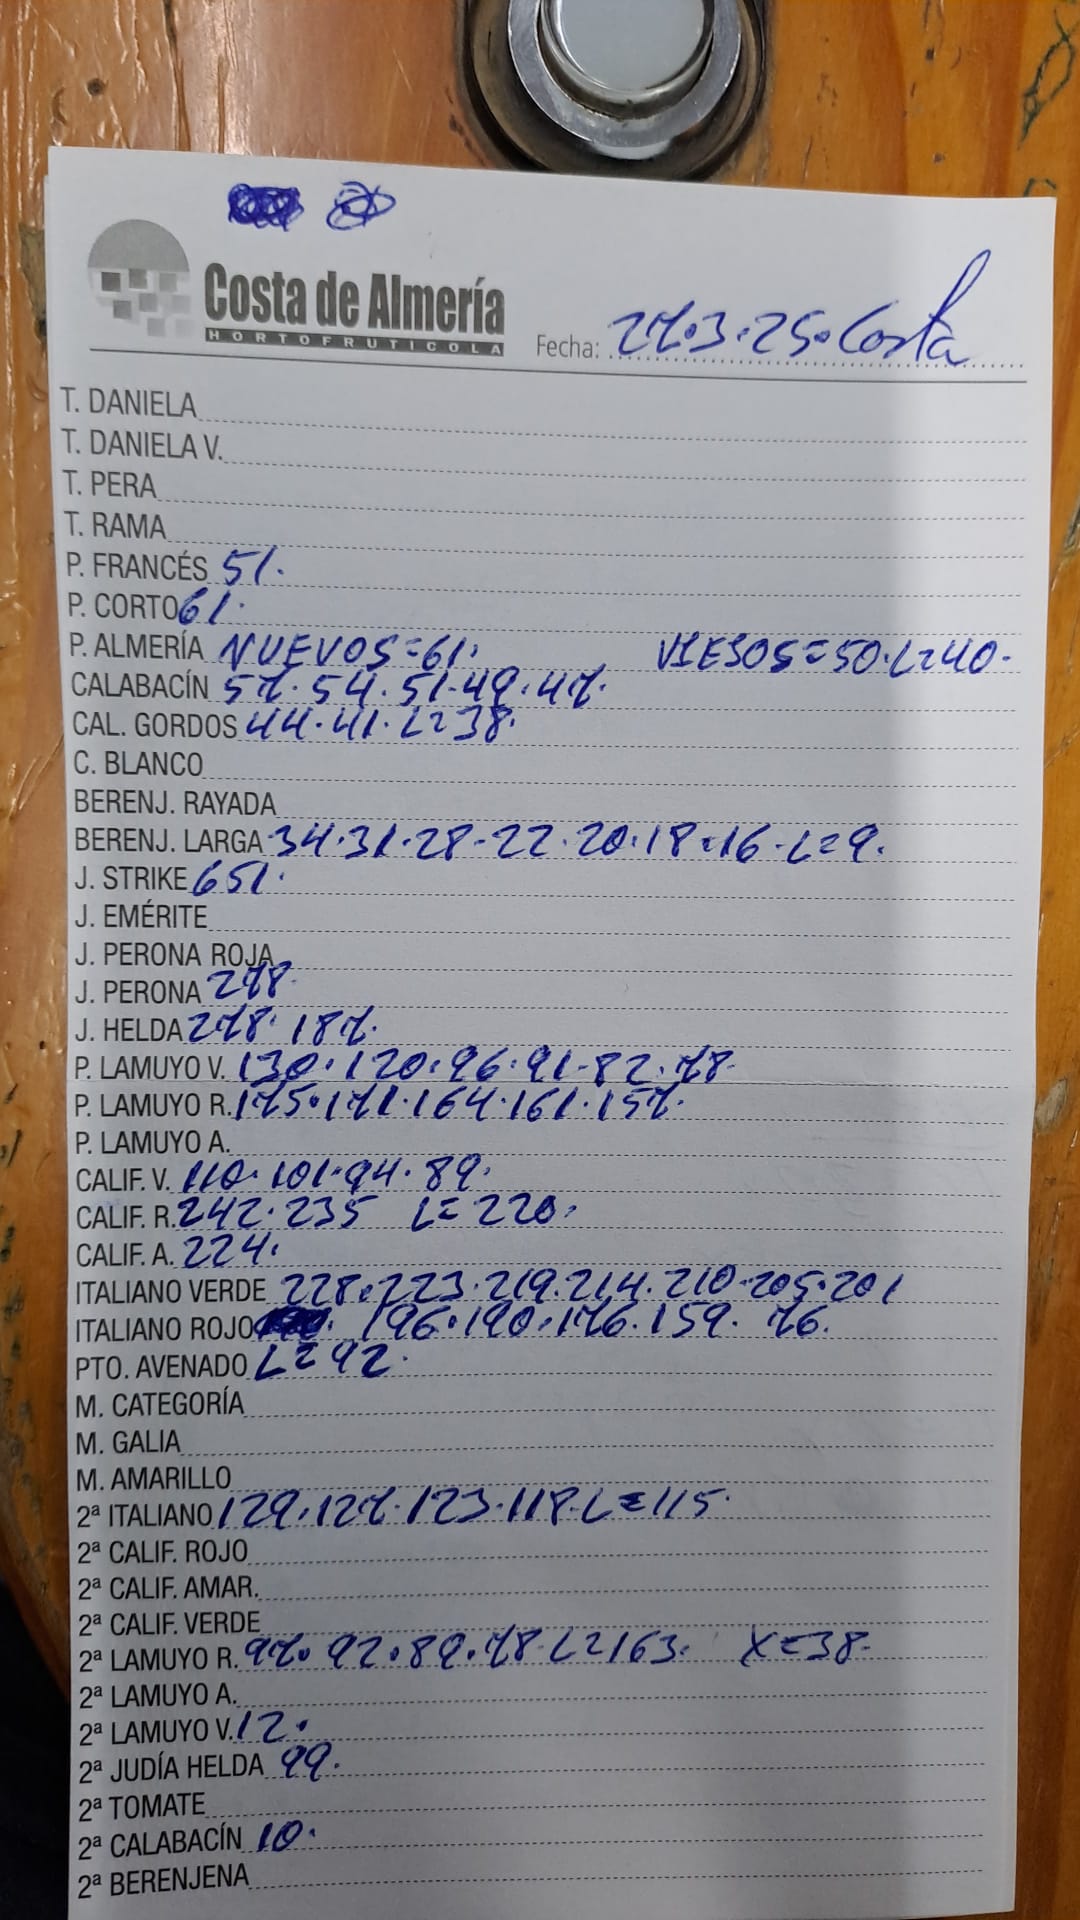 Costa de Almería
HORTOFRUTICOLA
Fecha: 27.3.25. Costa
T. DANIELA
T. DANIELA V.
T. PERA
T. RAMA
P. FRANCÉS 51.
P. CORTO 61.
P. ALMERÍA NUEVOS=61. VIEJOS=50. L=40.
CALABACÍN 57. 54. 51. 49. 47.
CAL. GORDOS 44. 41. L=38.
C. BLANCO
BERENJ. RAYADA
BERENJ. LARGA 34. 31. 28. 22. 20. 18. 16. L=9.
J. STRIKE 651.
J. EMÉRITE
J. PERONA ROJA
J. PERONA 278.
J. HELDA 278. 187.
P. LAMUYO V. 130. 120. 96. 91. 82. 78.
P. LAMUYO R. 175. 171. 164. 161. 157.
P. LAMUYO A.
CALIF. V. 110. 101. 94. 89.
CALIF. R. 242. 235 L=220.
CALIF. A. 224.
ITALIANO VERDE 228. 223. 219. 214. 210. 205. 201
ITALIANO ROJO 196. 190. 176. 159. 76.
PTO. AVENADO L=92.
M. CATEGORÍA
M. GALIA
M. AMARILLO
2ª ITALIANO 129. 127. 123. 118. L=115.
2ª CALIF. ROJO
2ª CALIF. AMAR.
2ª CALIF. VERDE
2ª LAMUYO R. 97. 92. 89. 78. L=163. X=38.
2ª LAMUYO A.
2ª LAMUYO V. 12.
2ª JUDÍA HELDA 99.
2ª TOMATE
2ª CALABACÍN 10.
2ª BERENJENA